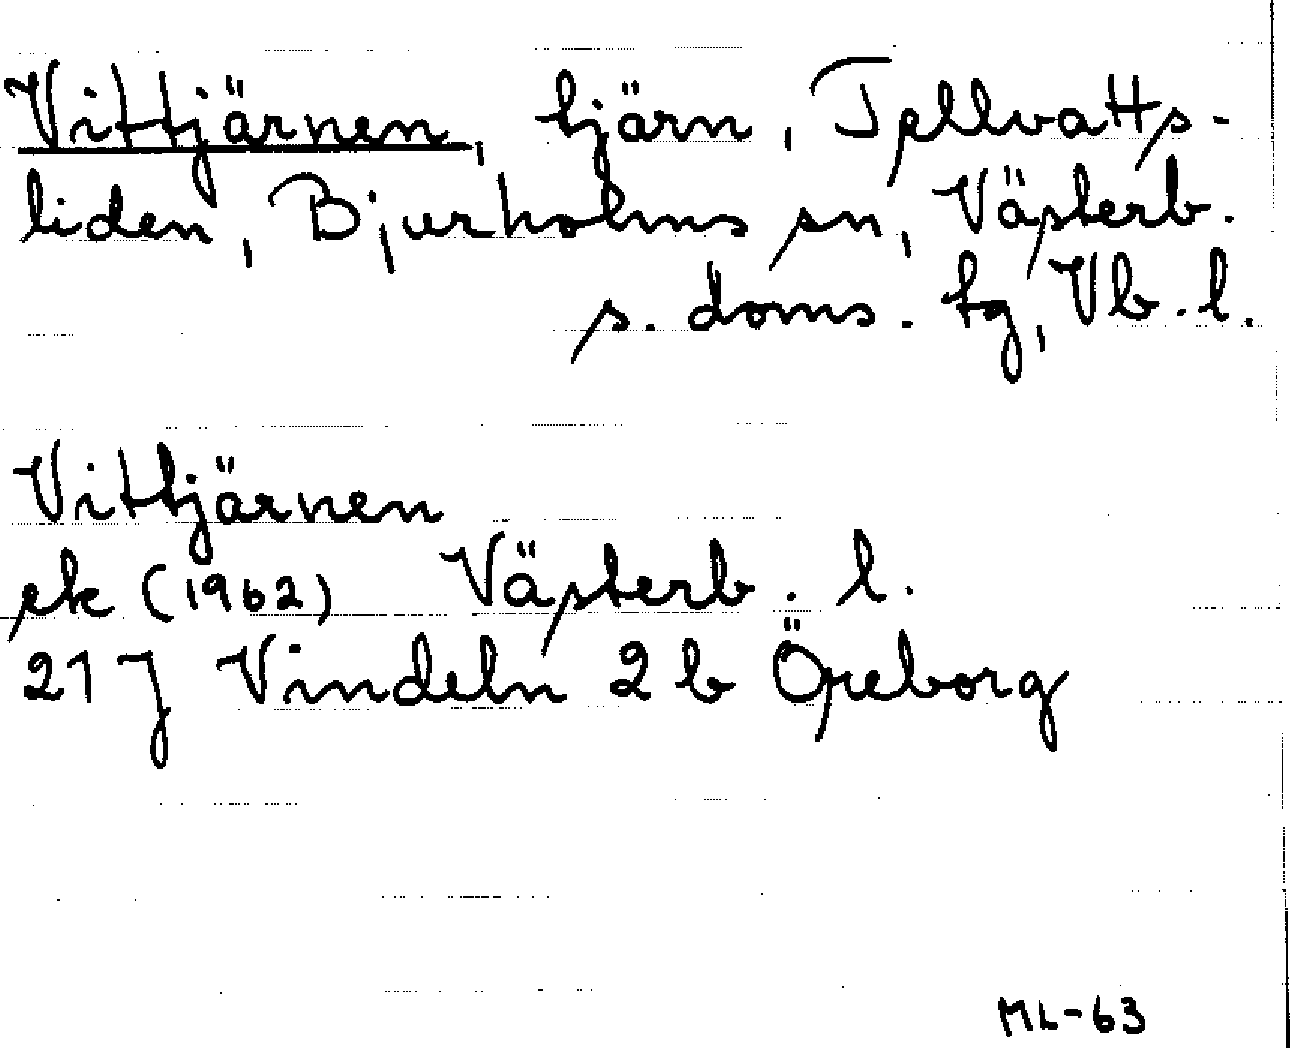 Vittjärnen, tjärn, Tpllvatts-
liden, Bjurholms sn, Västerb.
s. doms. tg, Vb. l.
Vittjärnen
ek (1962) Västerb. l.
21 J Vindeln 2 b Öreborg
ML-63